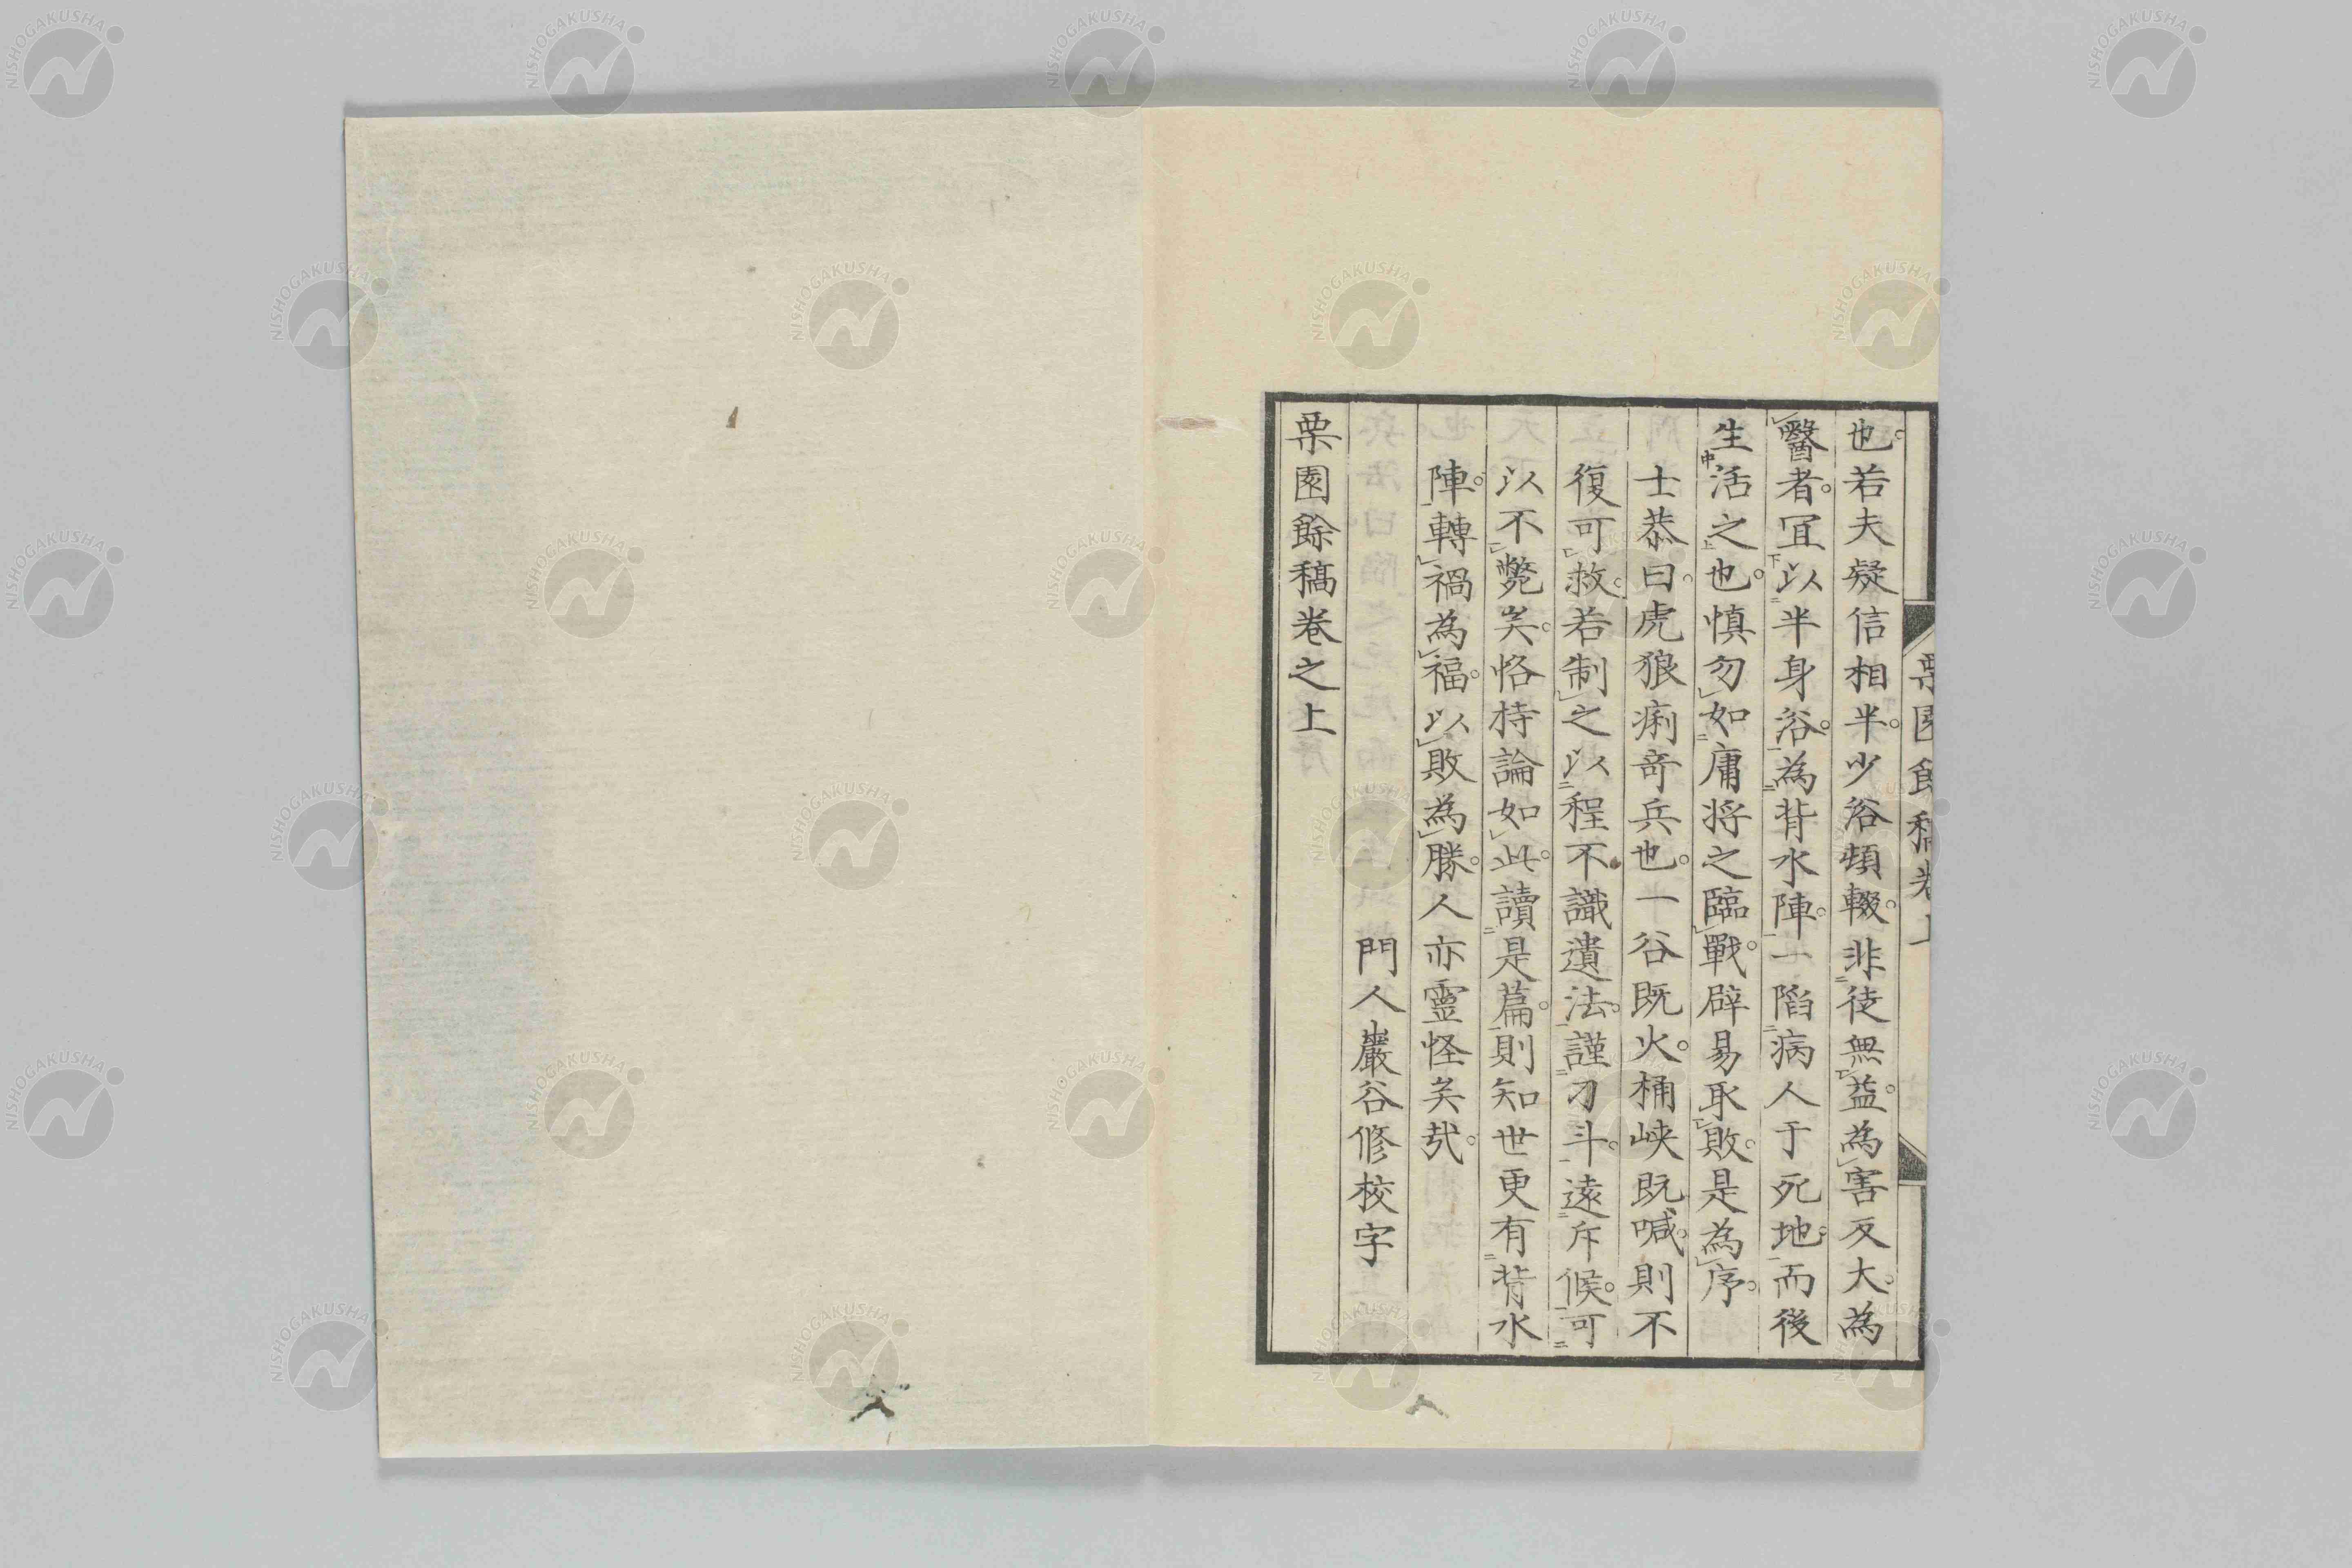 栗園餘稿卷上
也。若夫疑信相半。少浴頻輟。非徒無益。為害反大。為
醫者。宜以半身浴。為背水陣。一陷病人于死地。而後
生活之也。慎勿如庸將之臨戰。辟易取敗。是為序。
士恭曰。虎狼痢奇兵也。一谷既火。桶峽既喊。則不
復可救。若制之以程不識遺法。謹刁斗。遠斥候。可
以不斃矣。恪持論如此。讀是篇。則知世更有背水
陣。轉禍為福。以敗為勝。人亦靈怪矣哉。
門人巖谷修校字
栗園餘稿卷之上
NISHOGAKUSHA